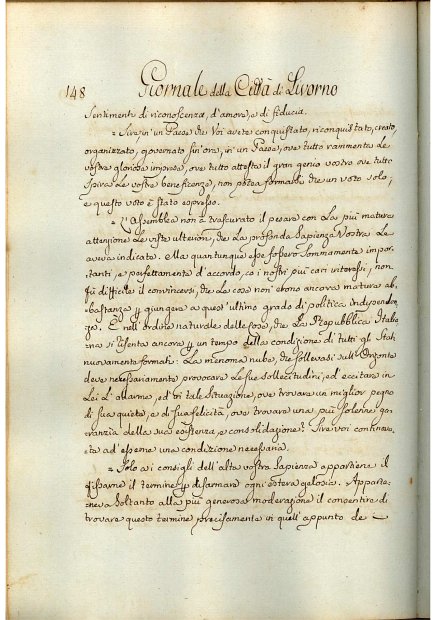 148 Giornale della Città di Livorno
Sentimenti di riconoscenza, d'amore, e di fiducia.
= Sire, in un Paese che Voi avete conquistato, riconquistato, creato,
organizzato, governato sin'ora, in un Paese, ove tutto rammenta le
vostre gloriose imprese, ove tutto attesta il gran genio vostro ove tutto
spira le vostre beneficenze, non potea formarsi che un voto solo,
e questo voto è stato espresso.
= L'Assemblea non à trascurato il pesare con la più matura
attenzione le viste ulteriori, che la profonda Sapienza Vostra le
aveva indicate. Ella quantunque esse fossero sommamente impor-
tanti, e perfettamente d'accordo, co i nostri più cari interessi, non
fù difficile il convincersi, che le cose non erono ancora mature ab-
bastanza p giungere a quest'ultimo grado di politica indipenden-
za. È nell'ordine naturale delle Cose, che la Repubblica Italia-
na si risenta ancora p un tempo della condizione di tutti gli Stati
nuovamente formati: La menoma nube, che sollevasi sull'Orizonte
deve necessariamente provocare le sue sollecitudini, ed eccitare in
Lei l'allarme, ed in tale Situazione, ove trovare un miglior pegno
di sua quiete, e di sua felicità, ove trovare una più solenne ga-
ranzia della sua esistenza, e consolidazione? Sire voi continue-
rete ad esserne una condizione necessaria.
= Solo a i consigli dell'alta vostra Sapienza appartiene il
fissarne il termine p disarmare ogni estera gelosia. Apparte-
neva soltanto alla più generosa moderazione il consentire di
trovare questo termine precisamente in quell'appunto de —